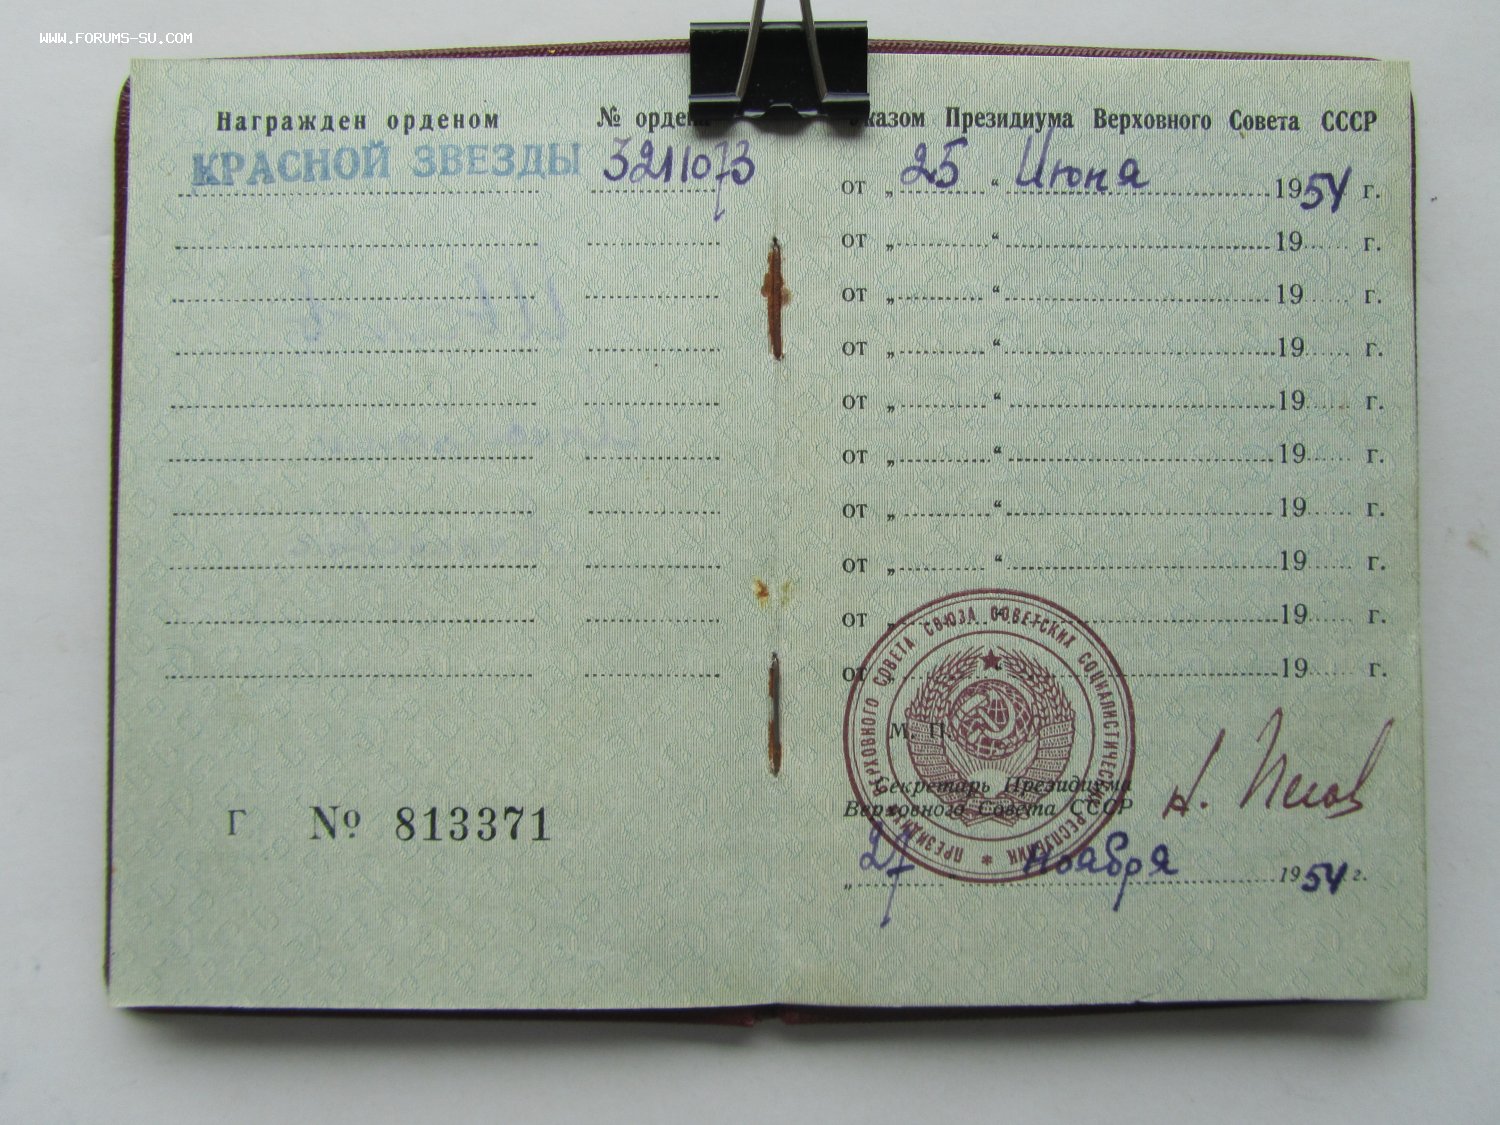 WWW.FORUMS-SU.COM
Награжден орденом № ордена Указом Президиума Верховного Совета СССР
КРАСНОЙ ЗВЕЗДЫ 3211073 от „25“ Июня 1954 г.
от „ “ 19 г.
от „ “ 19 г.
от „ “ 19 г.
от „ “ 19 г.
от „ “ 19 г.
от „ “ 19 г.
от „ “ 19 г.
от „ “ 19 г.
от „ “ 19 г.
М. П.
ПРЕЗИДИУМ ВЕРХОВНОГО СОВЕТА СОЮЗА СОВЕТСКИХ СОЦИАЛИСТИЧЕСКИХ РЕСПУБЛИК
Секретарь Президиума
Верховного Совета СССР Н. Пегов
Г № 813371
„27 ноября 1954 г.